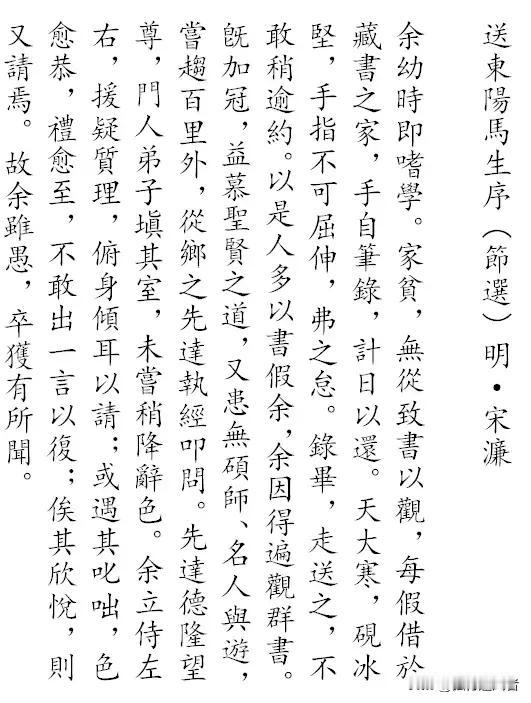 送東陽馬生序（節選）明·宋濂
余幼時即嗜學。家貧，無從致書以觀，每假借於
藏書之家，手自筆錄，計日以還。天大寒，硯冰
堅，手指不可屈伸，弗之怠。錄畢，走送之，不
敢稍逾約。以是人多以書假余，余因得遍觀群書。
既加冠，益慕聖賢之道，又患無碩師、名人與遊，
嘗趨百里外，從鄉之先達執經叩問。先達德隆望
尊，門人弟子填其室，未嘗稍降辭色。余立侍左
右，援疑質理，俯身傾耳以請；或遇其叱咄，色
愈恭，禮愈至，不敢出一言以復；俟其欣悅，則
又請焉。故余雖愚，卒獲有所聞。